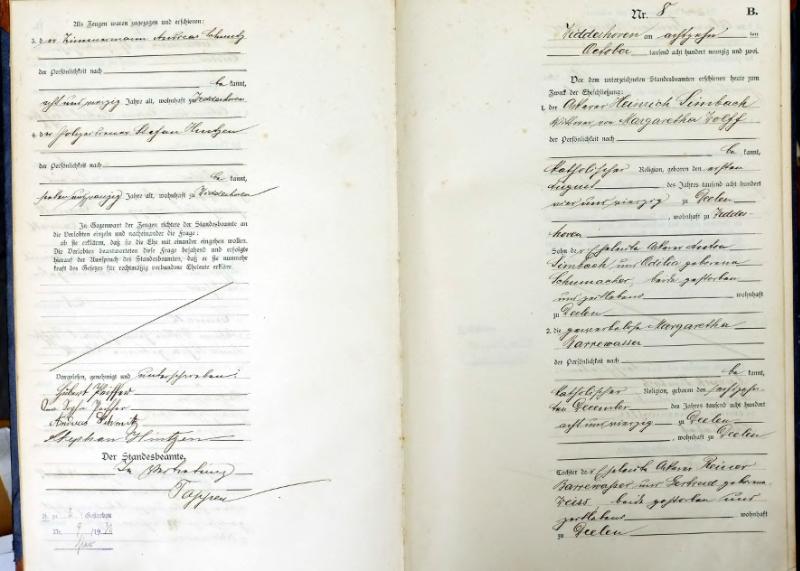 Als Zeugen waren zugezogen und erschienen:
3. der Zimmermann Andreas Schmitz
der Persönlichkeit nach
be kannt,
acht und vierzig Jahre alt, wohnhaft zu Vettweiss
4. der Polizeidiener Stefan Hintzen
der Persönlichkeit nach
be kannt,
sieben und zwanzig Jahre alt, wohnhaft zu
In Gegenwart der Zeugen richtete der Standesbeamte an
die Verlobten einzeln und nacheinander die Frage:
ob sie erklären, daß sie die Ehe mit einander eingehen wollen.
Die Verlobten beantworteten diese Frage bejahend und erfolgte
hierauf der Ausspruch des Standesbeamten, daß er sie nunmehr
kraft des Gesetzes für rechtmäßig verbundene Eheleute erkläre.
Vorgelesen, genehmigt und unterschrieben:
Hubert Pfeiffer
Pfeiffer
Andreas Schmitz
Stephan Hintzen
Der Standesbeamte.
In Vertretung
Tappen
Nr. 8
B.
am achtzehn ten
October tausend acht hundert neunzig und zwei.
Vor dem unterzeichneten Standesbeamten erschienen heute zum
Zweck der Eheschließung:
1. der Ackerer Heinrich Simbach
Wittwer von Margaretha Wolff
der Persönlichkeit nach
be kannt,
katholischer Religion, geboren den ersten
August des Jahres tausend acht hundert
vier und vierzig zu Deelen
, wohnhaft zu
Sohn der Eheleute Ackerer
Simbach und Odilia geborene
Schumacher, beide gestorben
und zeitlebens wohnhaft
zu Deelen
2. die gewerbelose Margaretha
Barrewasser
der Persönlichkeit nach
be kannt,
katholischer Religion, geboren den achtzehn-
ten December des Jahres tausend acht hundert
acht und vierzig zu Deelen
, wohnhaft zu Deelen
Tochter der Eheleute Ackerer Reiner
Barrewasser und Gertrud geborene
Weiss, beide gestorben und
zeitlebens wohnhaft
zu Deelen